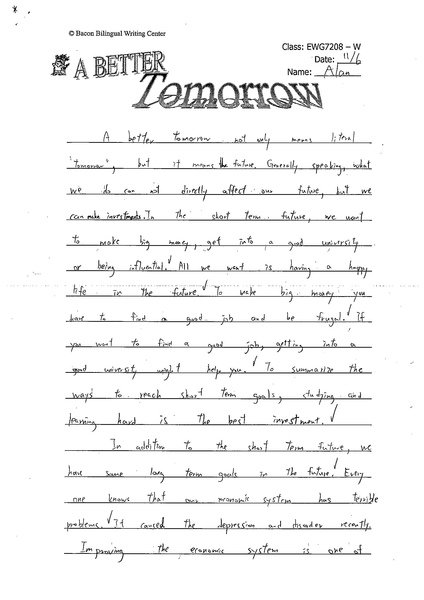 © Bacon Bilingual Writing Center
Class: EWG7208 – W
Date: 11/6
Name: Alan
A BETTER
Tomorrow
A better tomorrow not only means literal
"tomorrow", but it means the future. Generally speaking, what
we do can not directly affect our future, but we
can make investments. In the short term future, we want
to make big money, get into a good university
or being influential. All we want is having a happy
life in the future. To make big money you
have to find a good job and be frugal. If
you want to find a good job, getting into a
good university might help you. To summarize the
ways to reach short term goals, studying and
learning hard is the best investment.
In addition to the short term future, we
have some long term goals in the future. Every
one knows that our economic system has terrible
problems. It caused the depression and disorder recently.
Improving the economic system is one of